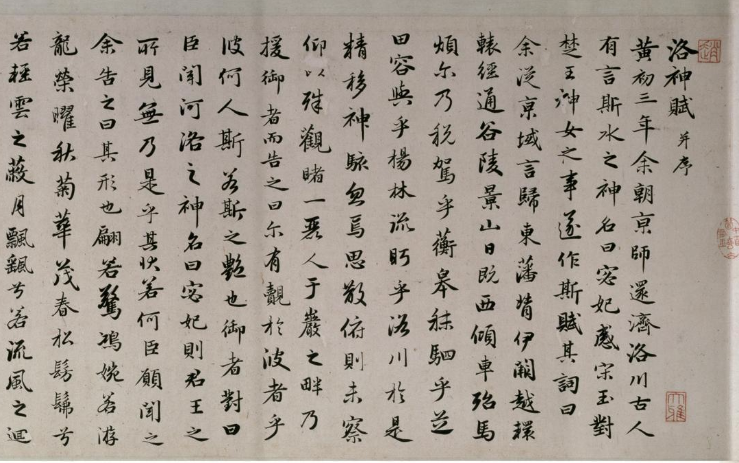 洛神賦 并序
黃初三年余朝京師還濟洛川古人
有言斯水之神名曰宓妃感宋玉對
楚王神女之事遂作斯賦其詞曰
余從京域言歸東藩背伊闕越轘
轅經通谷陵景山日既西傾車殆馬
煩尒乃稅駕乎蘅皋秣駟乎芝
田容與乎楊林流眄乎洛川於是
精移神駭忽焉思散俯則未察
仰以殊觀睹一麗人于巖之畔乃
援御者而告之曰尒有覿於彼者乎
彼何人斯若斯之艷也御者對曰
臣聞河洛之神名曰宓妃則君王之
所見無乃是乎其狀若何臣願聞之
余告之曰其形也翩若驚鴻婉若游
龍榮曜秋菊華茂春松髣髴兮
若輕雲之蔽月飄飖兮若流風之迴
大雅